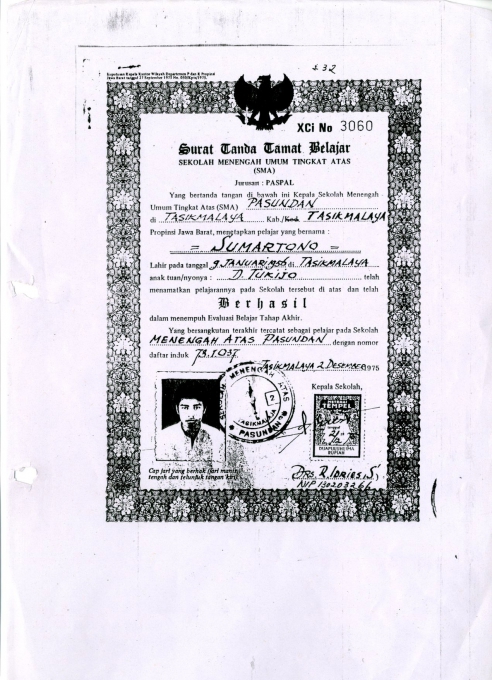 Keputusan Kepala Kantor Wilayah Departemen P dan K Propinsi
Jawa Barat tanggal 27 September 1975 No.
± 32
XCi No 3060
Surat Tanda Tamat Belajar
SEKOLAH MENENGAH UMUM TINGKAT ATAS
(SMA)
Jurusan : PASPAL
Yang bertanda tangan di bawah ini Kepala Sekolah Menengah
Umum Tingkat Atas (SMA) PASUNDAN
di TASIKMALAYA Kab./ TASIKMALAYA
Propinsi Jawa Barat, menetapkan pelajar yang bernama :
= SUMARTONO =
Lahir pada tanggal 9 JANUARI 1956 di TASIKMALAYA
anak tuan/nyonya : D. TUKIJO telah
menamatkan pelajarannya pada Sekolah tersebut di atas dan telah
Berhasil
dalam menempuh Evaluasi Belajar Tahap Akhir.
Yang bersangkutan terakhir tercatat sebagai pelajar pada Sekolah
MENENGAH ATAS PASUNDAN dengan nomor
daftar induk 73.1.037
TASIKMALAYA 2 DESEMBER 1975
Kepala Sekolah,
MENENGAH ATAS
2
TASIKMALAYA
PASUNDAN
TEMPEL
25
DUAPULUHLIMA
RUPIAH
Cap jari yang berhak (jari manis
tengah dan telunjuk tangan kiri)
DRS. R. IDRIES S.
NIP 130203266